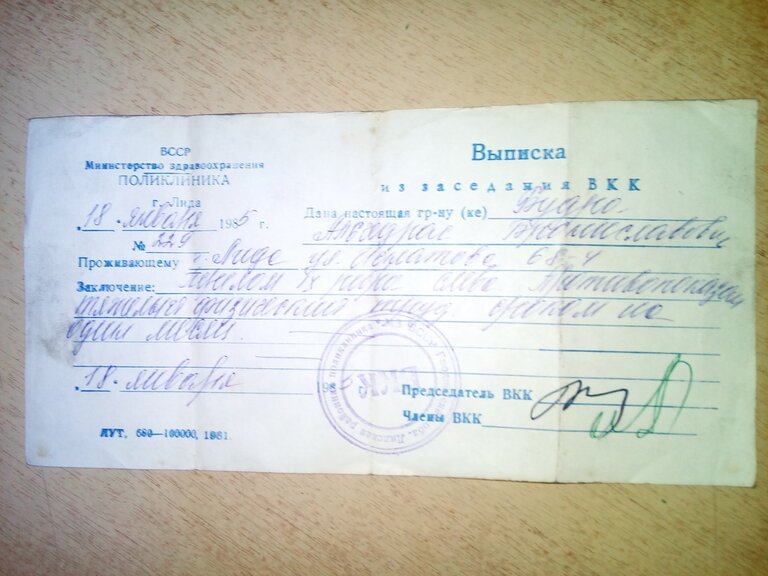 БССР
Министерство здравоохранения
ПОЛИКЛИНИКА
г. Лида
18 января 1985 г.
№ 229
Выписка
из заседания ВКК
Дана настоящая гр-ну (ке)
Проживающему г. Лида ул. 68-4
Заключение: Перелом IX ребра слева. Противопоказан
тяжелый физический труд сроком на
один месяц.
18 января 198 г.
Председатель ВКК
Члены ВКК
ЛУТ. 680—100000, 1981
ВКК